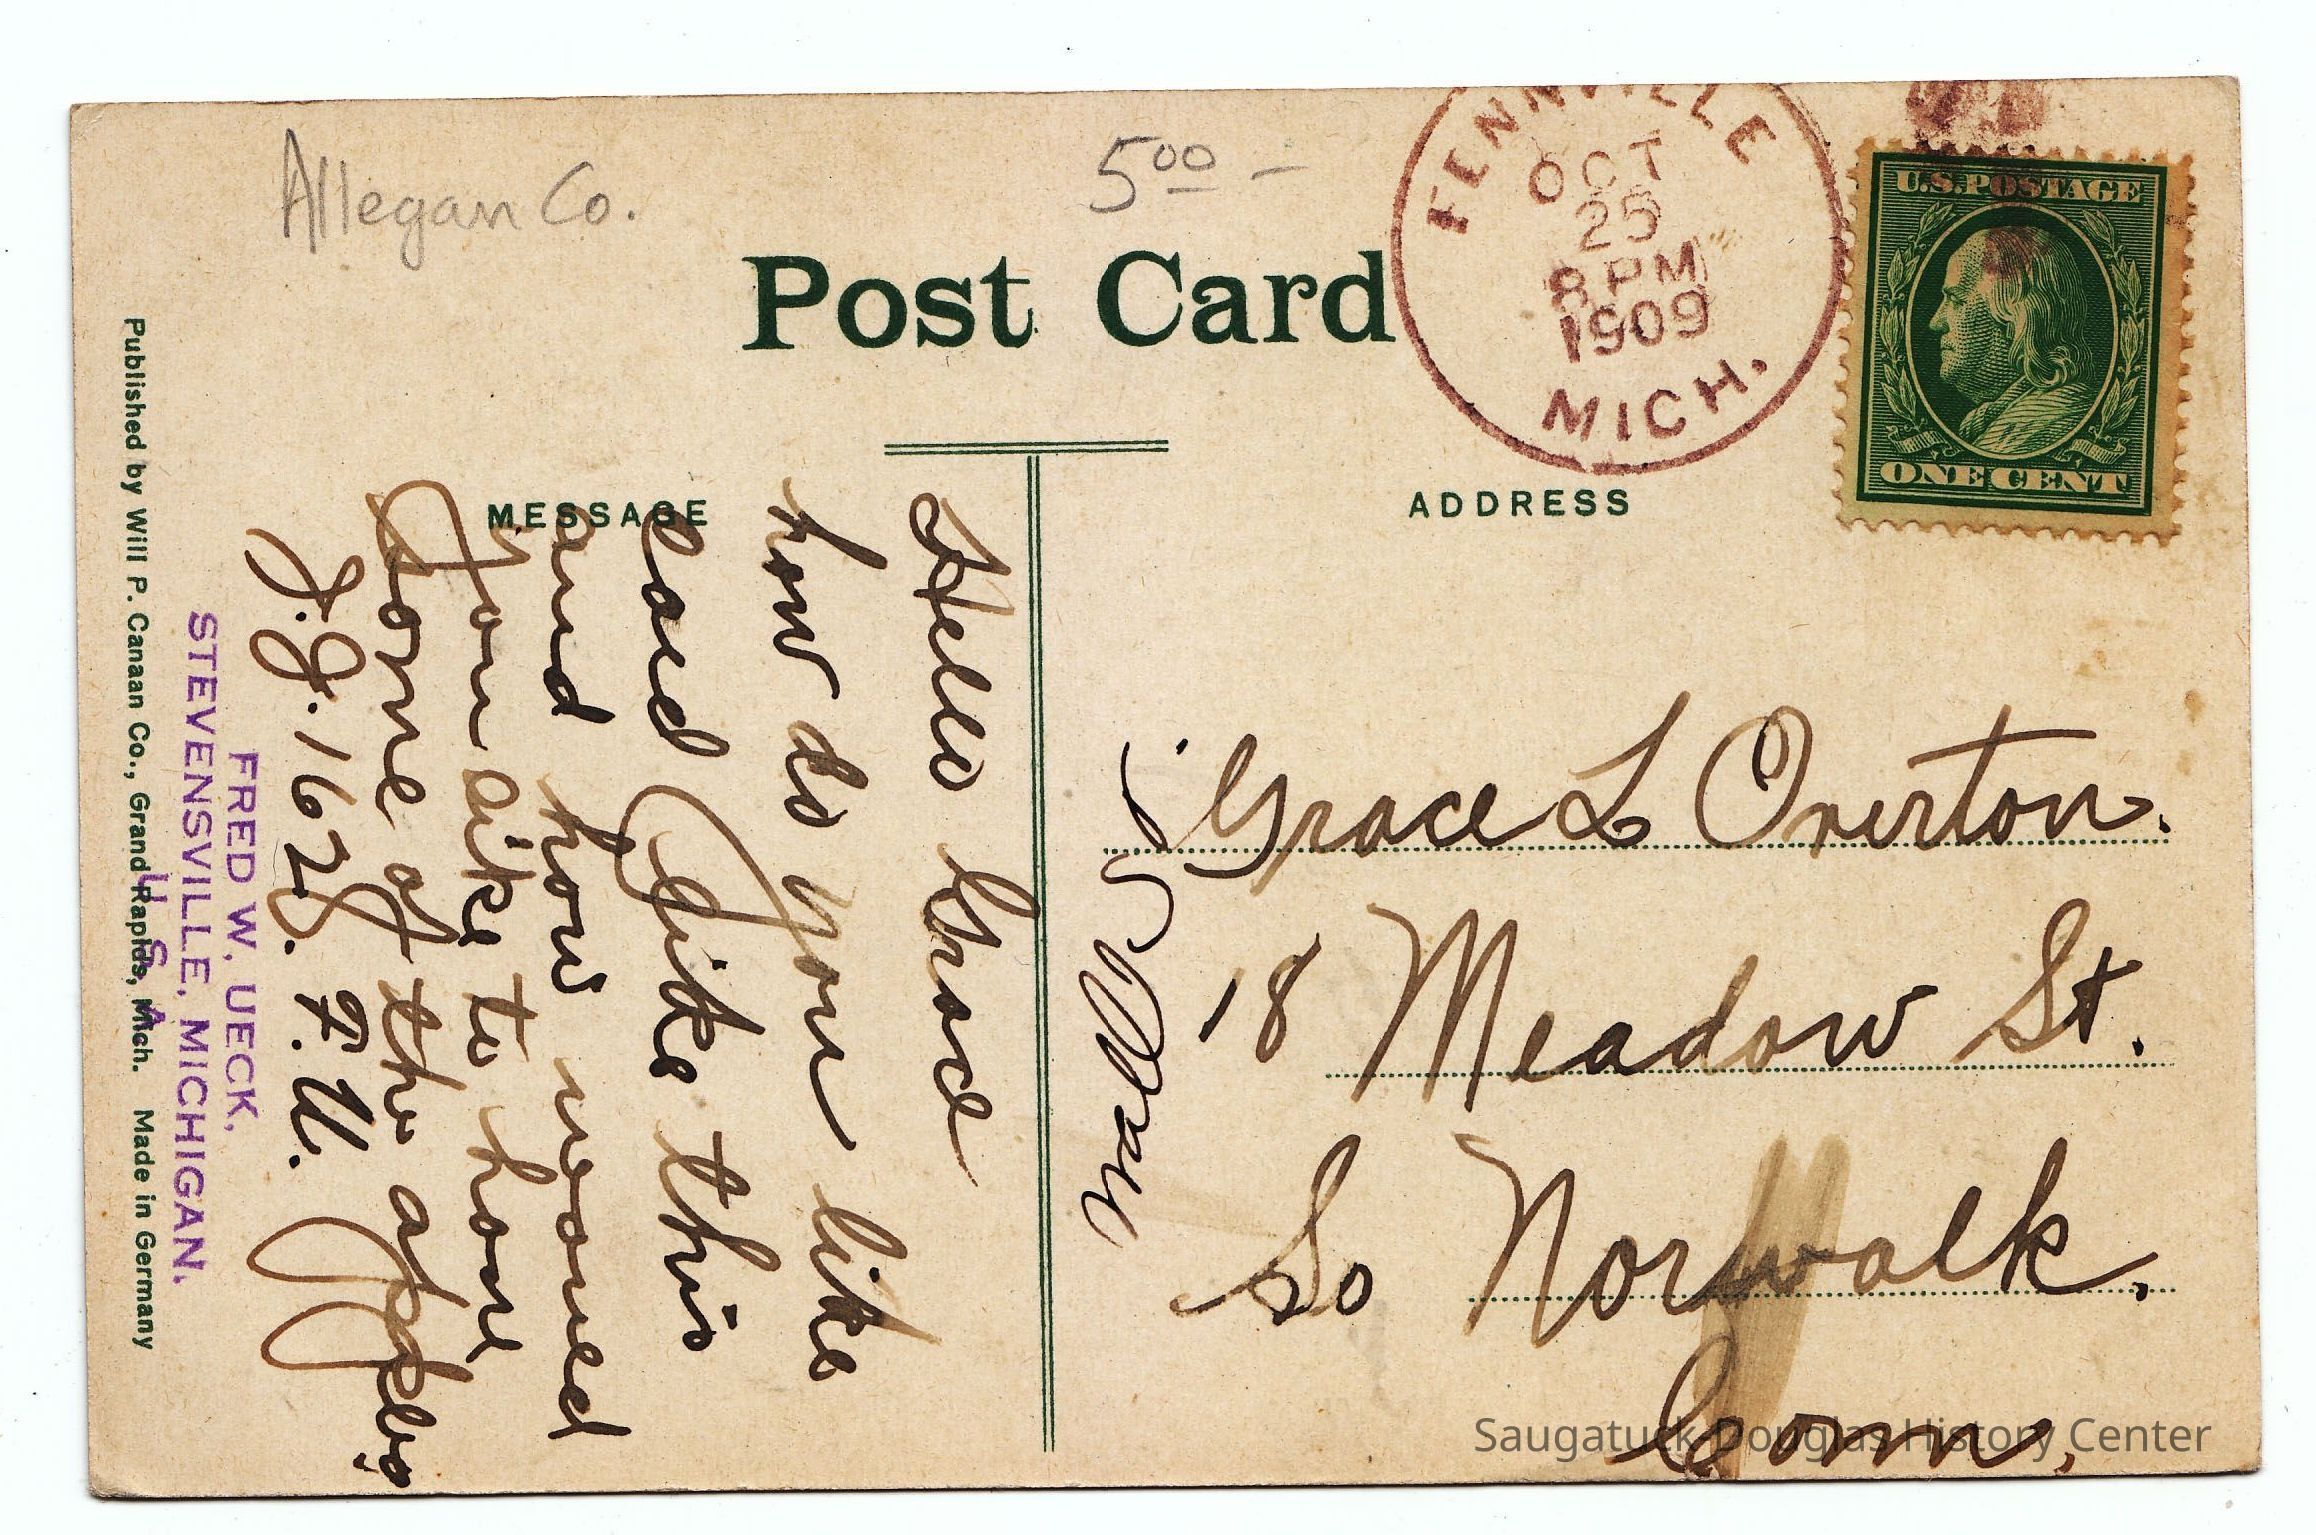 Allegan Co.
5 00 –
Post Card
FENNVILLE
OCT
25
8 PM
1909
MICH.
U.S. POSTAGE
ONE CENT
MESSAGE
ADDRESS
Hello Grace
how do you like
card Like this
and how woued
You aike to have
some of the apples
J.J. 1628. F.U.
FRED W. UECK,
STEVENSVILLE, MICHIGAN.
U. S. A.
Published by Will P. Canaan Co., Grand Rapids, Mich. Made in Germany
Grace L Overton.
18 Meadow St.
So Norwalk.
Conn.
Saugatuck Douglas History Center